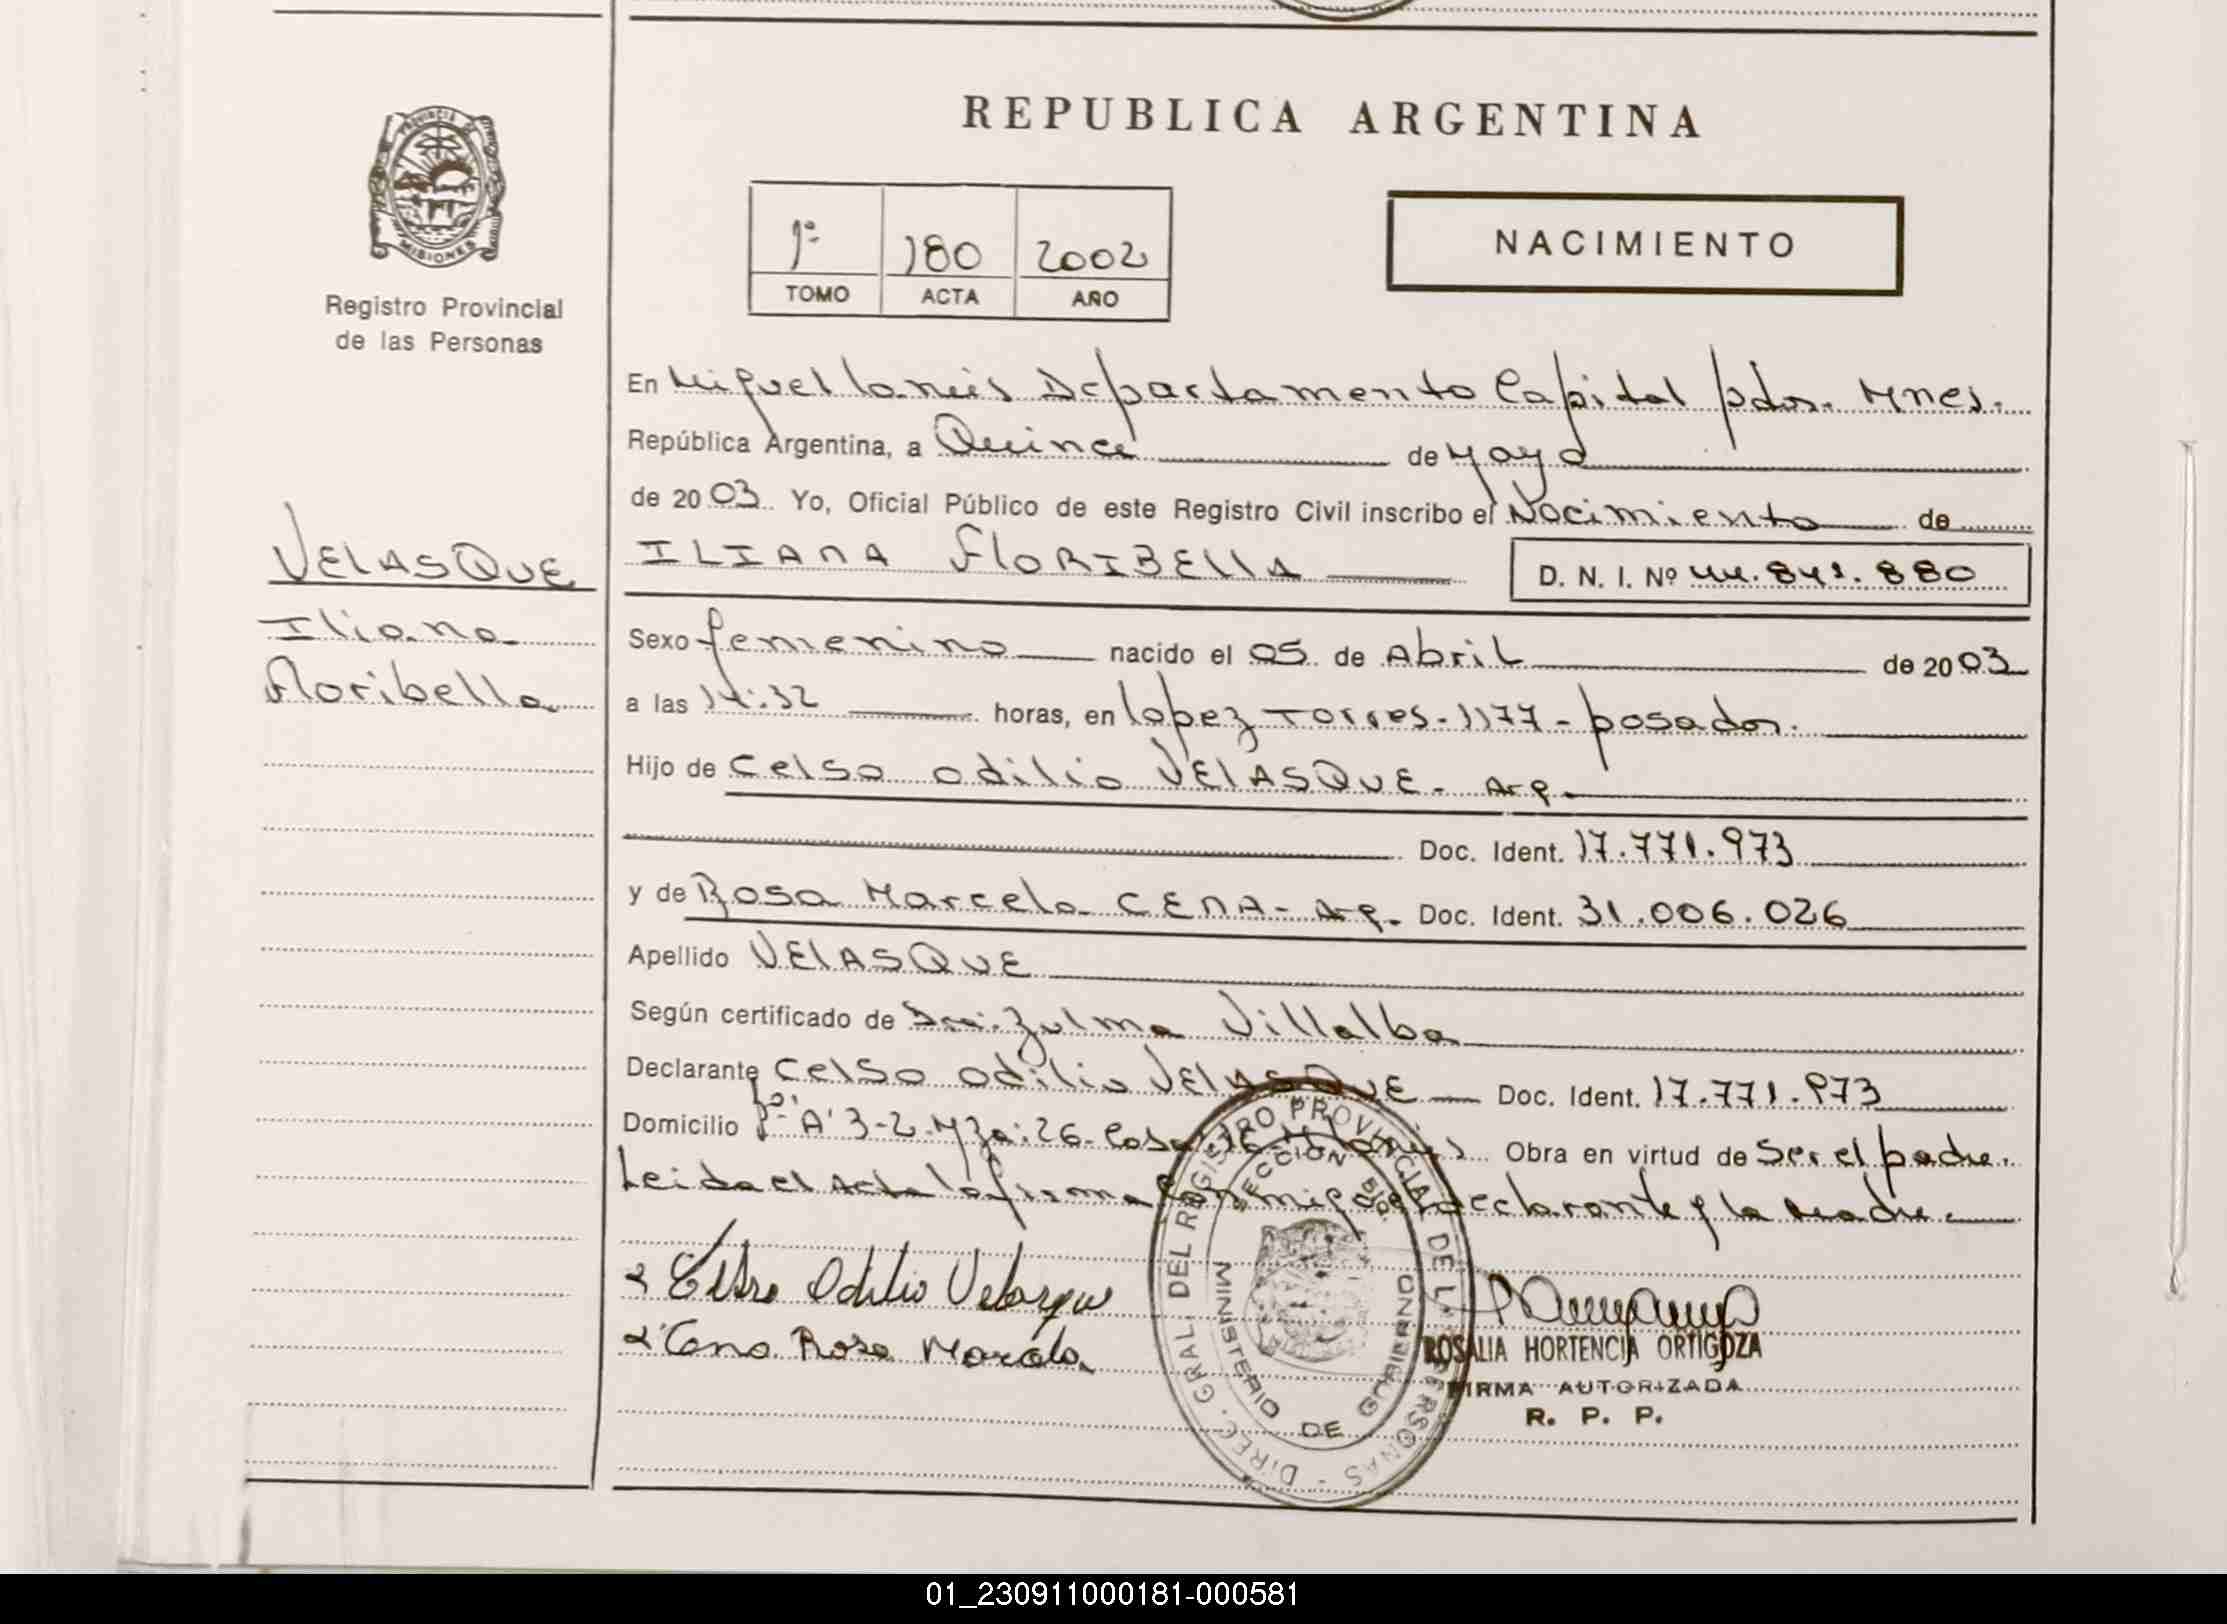 REPUBLICA ARGENTINA
PROVINCIA DE
MISIONES
Registro Provincial
de las Personas
1º 180 2002
TOMO ACTA AÑO
NACIMIENTO
En Miguel Lanús Departamento Capital Pdas. Mnes.
República Argentina, a Quince de Mayo
de 2003. Yo, Oficial Público de este Registro Civil inscribo el Nacimiento de
VELASQUE
Iliana
Floribella
ILIANA FLORIBELLA D. N. I. Nº 44.841.880
Sexo femenino nacido el 05 de Abril de 2003
a las 14:32 horas, en Lopez Torres-1177-posadas.
Hijo de Celso Odilio VELASQUE- Arg.
Doc. Ident. 17.771.973
y de Rosa Marcela CENA- Arg. Doc. Ident. 31.006.026
Apellido VELASQUE
Según certificado de Dra. Zulma Villalba
Declarante Celso Odilio VELASQUE Doc. Ident. 17.771.973
Domicilio Bº 'A' 3-2-Mza:26-Casa Obra en virtud de Ser el padre.
Leida el Acta la firma conmigo el declarante y la madre-
Celso Odilio Velasque
Cena Rosa Marcela
DIREC. GRAL. DEL REGISTRO PROVINCIAL DE LAS PERSONAS
SECCION
MINISTERIO DE GOBIERNO
ROSALIA HORTENCIA ORTIGOZA
FIRMA AUTORIZADA
R. P. P.
01_230911000181-000581